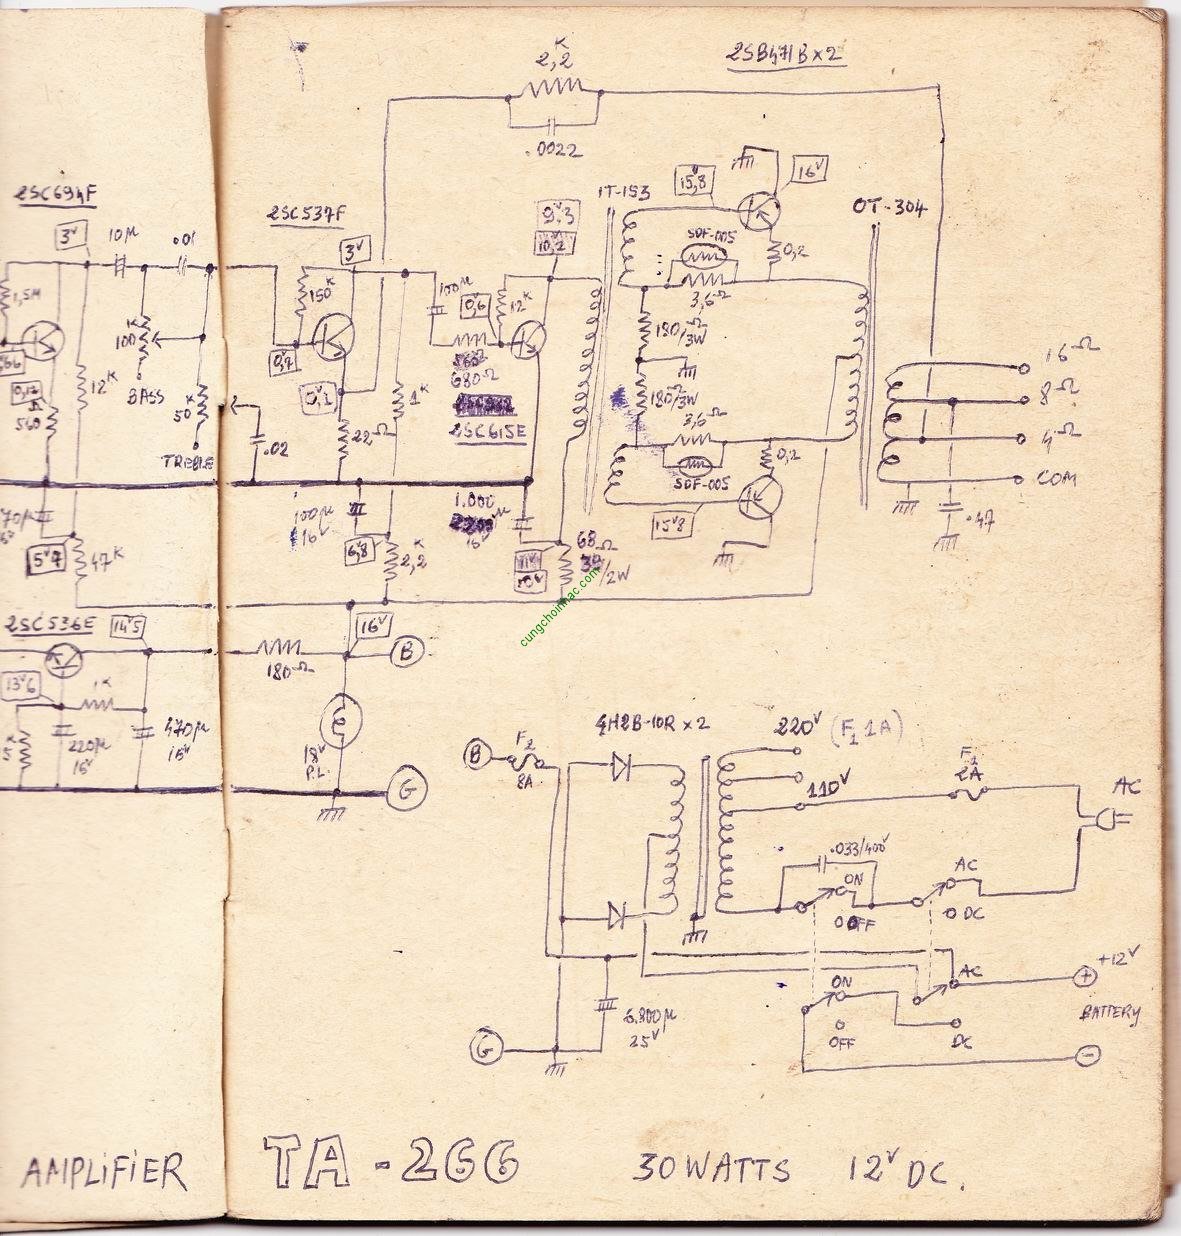 2SB471B×2
K
2,2
.0022
2SC694F
3V
10µ
.01
2SC537F
3V
150K
0V7
0V1
22Ω
1K
100µ
0V6
12K
9V3
10,2
IT-153
15V8
16V
SDF-005
0,2
3,6Ω
180Ω/3W
180Ω/3W
3,6Ω
SDF-005
0,2
15V8
OT-304
16Ω
8Ω
4Ω
COM
.47
1,5M
560Ω
12K
100K
BASS
50K
TREBLE
.02
680Ω
2SC615E
1.000
16V
100µ
16V
6V8
2,2K
10V
68Ω
/2W
5V7
47K
cungchoinhac.com
2SC536E
14V5
180Ω
16V
B
13V6
1K
220µ
16V
470µ
16V
18V
P.L.
G
B
F2
8A
4H2B-10R×2
220V (F1 1A)
110V
F1
2A
AC
.033/400V
ON
OFF
AC
DC
ON
OFF
AC
DC
+12V
+
BATTERY
-
6.800µ
25V
G
AMPLiFiER TA-266 30WATTS 12V DC.